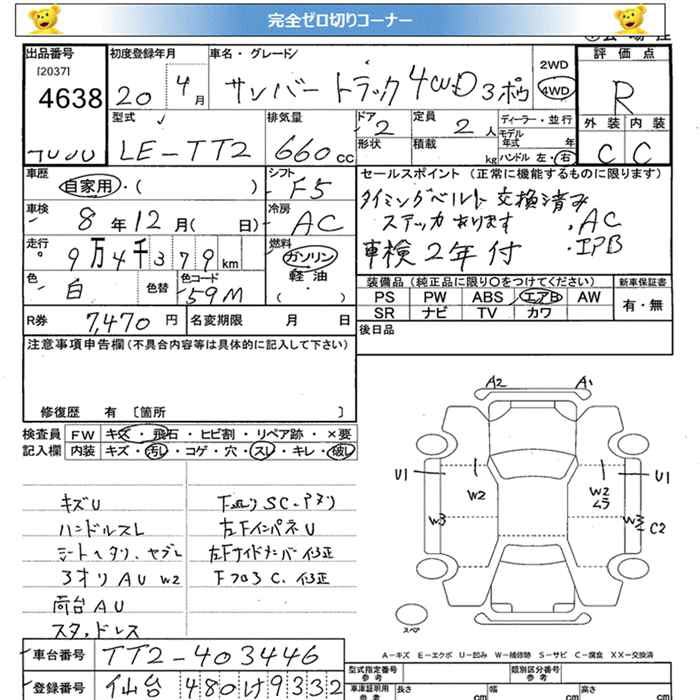 完全ゼロ切りコーナー
出品番号 初度登録年月 車名・グレード 2WD 4WD 評価点
[2037]
4638 20 4月 サンバートラック 4WD 3方 R
型式 排気量 ドア 定員 ディーラー・並行 外装 内装
LE-TT2 660cc 2 2人 モデル年式 年
形状 積載 kg ハンドル 左・右 C C
車歴 シフト セールスポイント (正常に機能するものに限ります)
自家用・( ) F5 タイミングベルト交換済み
車検 冷房 ステッカあります ・AC
8年12月( 日) AC 車検2年付 ・エアB
走行 燃料
9万4千379km ガソリン 軽・油 ( )
色 色替 色コード 装備品 (純正品に限り〇をつけてください) 新車保証書
白 59M PS PW ABS エアB AW 有・無
SR ナビ TV カワ
R券 7,470円 名変期限 月 日 後日品
注意事項申告欄 (不具合内容等は具体的に記入して下さい)
修復歴 有 [箇所 ]
検査員 FW キズ・飛石・ヒビ割・リペア跡・×要
記入欄 内装 キズ・汚レ・コゲ・穴・スレ・キレ・破レ
A2 A1
U1 W2 W2 ムラ U1
W3 W3 C2
キズU 下廻りSC・サビ
ハンドルスレ 左FインパネU
シートヘタリ、ヤブレ 左Fサイドメンバー修正
3オリAU W2 FフロアC、修正
荷台AU
スタッドレス
スペア
A-キズ E-エクボ U-凹み W-補修跡 S-サビ C-腐食 XX-交換済
車台番号 TT2-403446 型式指定番号 参考 類別区分番号 参考
登録番号 仙台 480 け 9332 車庫証明用 参考 長さ cm 幅 cm 高さ cm